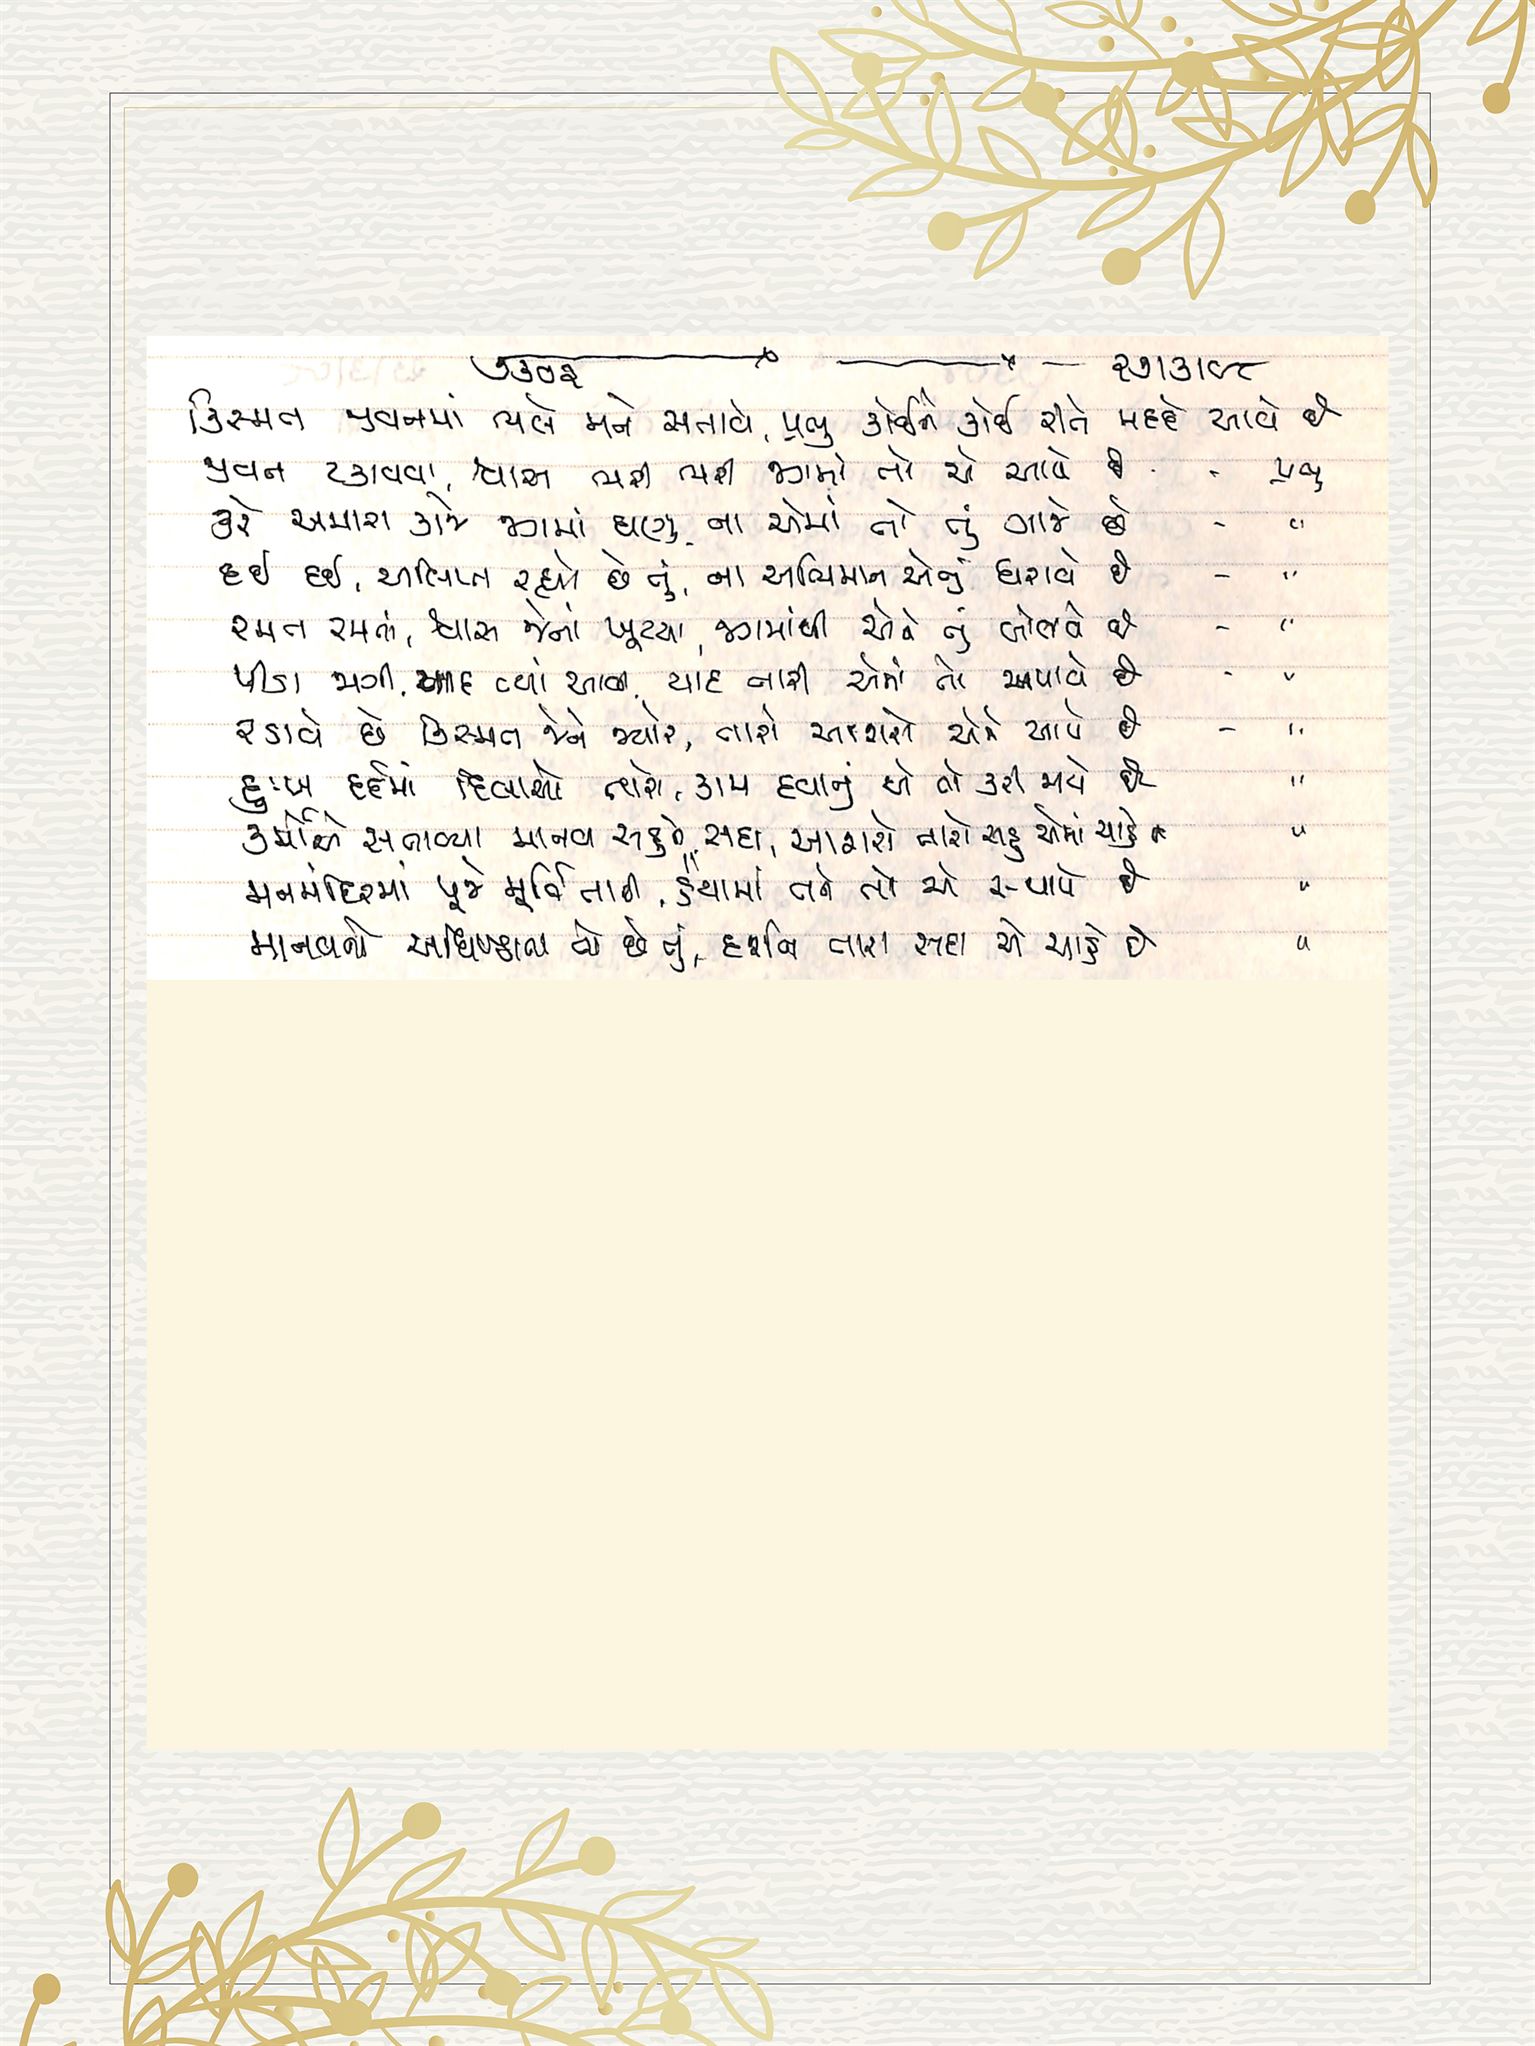 ૭૩૦૨ ૨૭।૩।૯૮
કિસ્મત જીવનમાં ભલે મને સતાવે, પ્રભુ કોઈને કોઈ રીતે મદદે આવે છે
જીવન ટકાવવા, શ્વાસ ભરી ભરી જગમાં તો એ આપે છે - પ્રભુ
કરે અમારા કાજે જગમાં ઘણુ ના એમાં તો તું ગાજે છે - "
દઈ દઈ, અલિપ્ત રહ્યો છે તું, ના અભિમાન એનું ધરાવે છે - "
રમત રમતાં, શ્વાસ જેનાં ખૂટયા, જગમાંથી એને તું બોલાવે છે - "
પીડા જાગી, યાદ ત્યાં આવી, યાદ તારી એમાં તો અપાવે છે - "
રડાવે છે કિસ્મત જેને જ્યારે, તારો આશરો એને આપે છે - "
દુઃખ દર્દમાં દિલાસો તારો, કામ દવાનું એ તો કરી જાયે છે "
કર્મોએ સતાવ્યા માનવ સહુને, સદા, આશરો તારો સહુ એમાં ચાહે છે "
મનમંદિરમાં પૂજે મૂર્તિ તારી, હૈયામાં તને તો એ સ્થાપે છે "
માનવનો અધિષ્ઠાતા તો છે તું, દર્શન તારા સદા એ ચાહે છે "